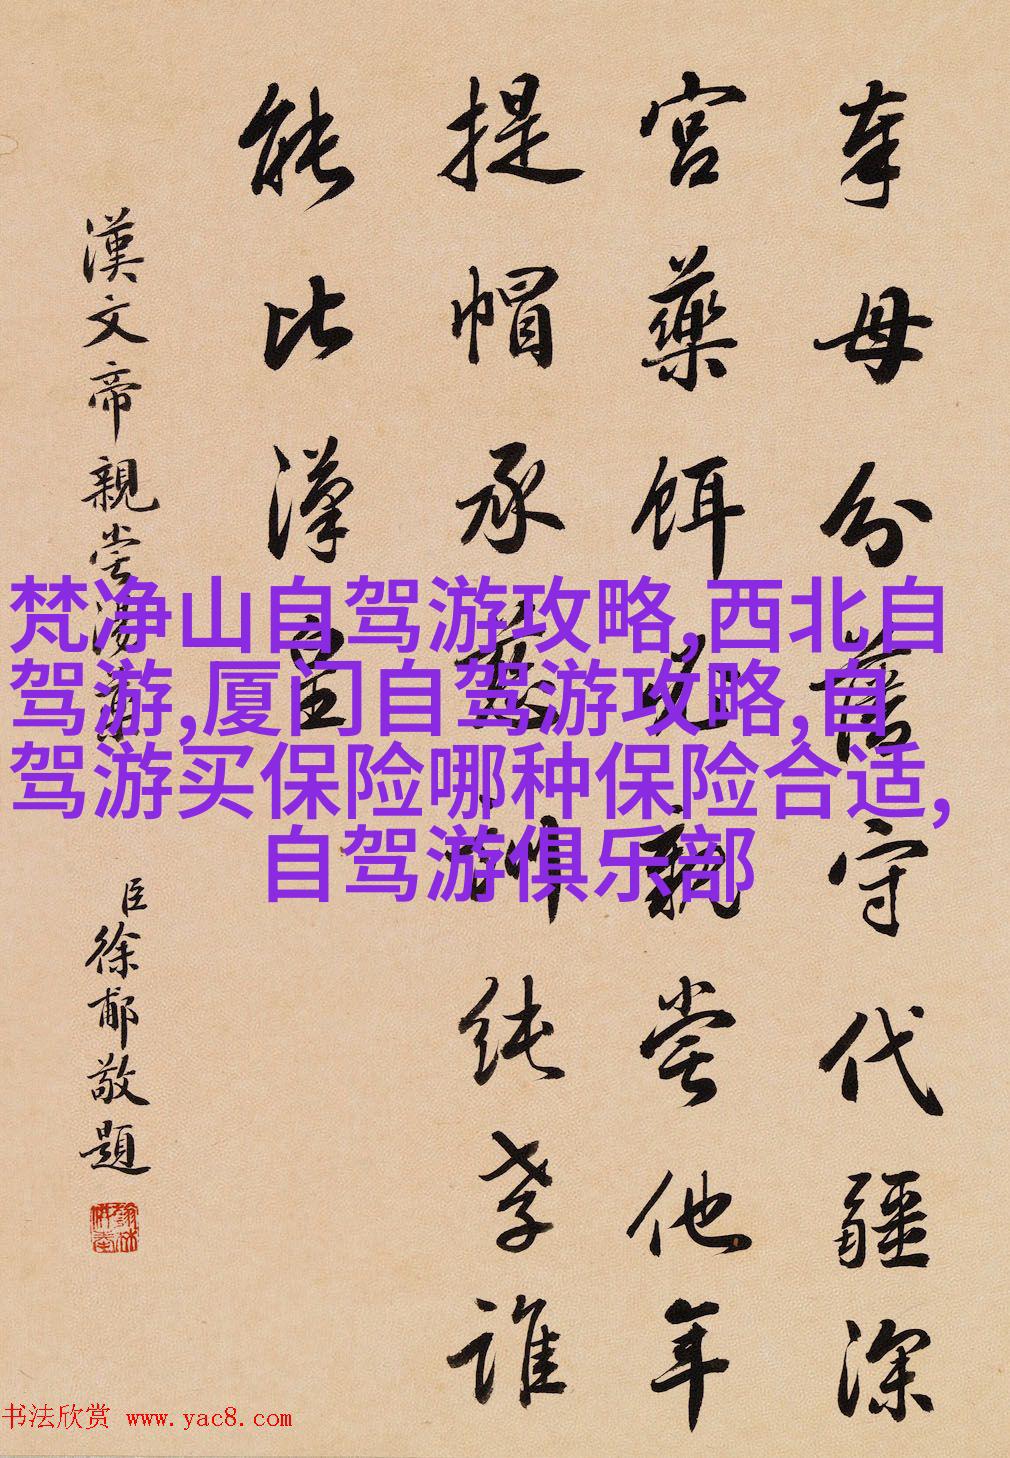 奉母分藩守代疆深
宮藥餌親嘗他年
提帽承慈訓純孝誰
能比漢皇
漢文帝親嘗湯藥
臣徐郙敬題
梵净山自驾游攻略,西北自
驾游,厦门自驾游攻略,自
驾游买保险哪种保险合适,
自驾游俱乐部
书法欣赏 www.yac8.com